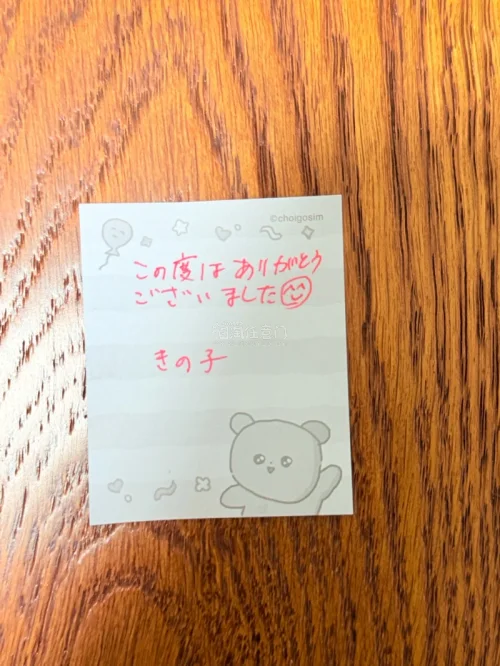 ©choigosim
この度は ありがとう
ございました
きの子